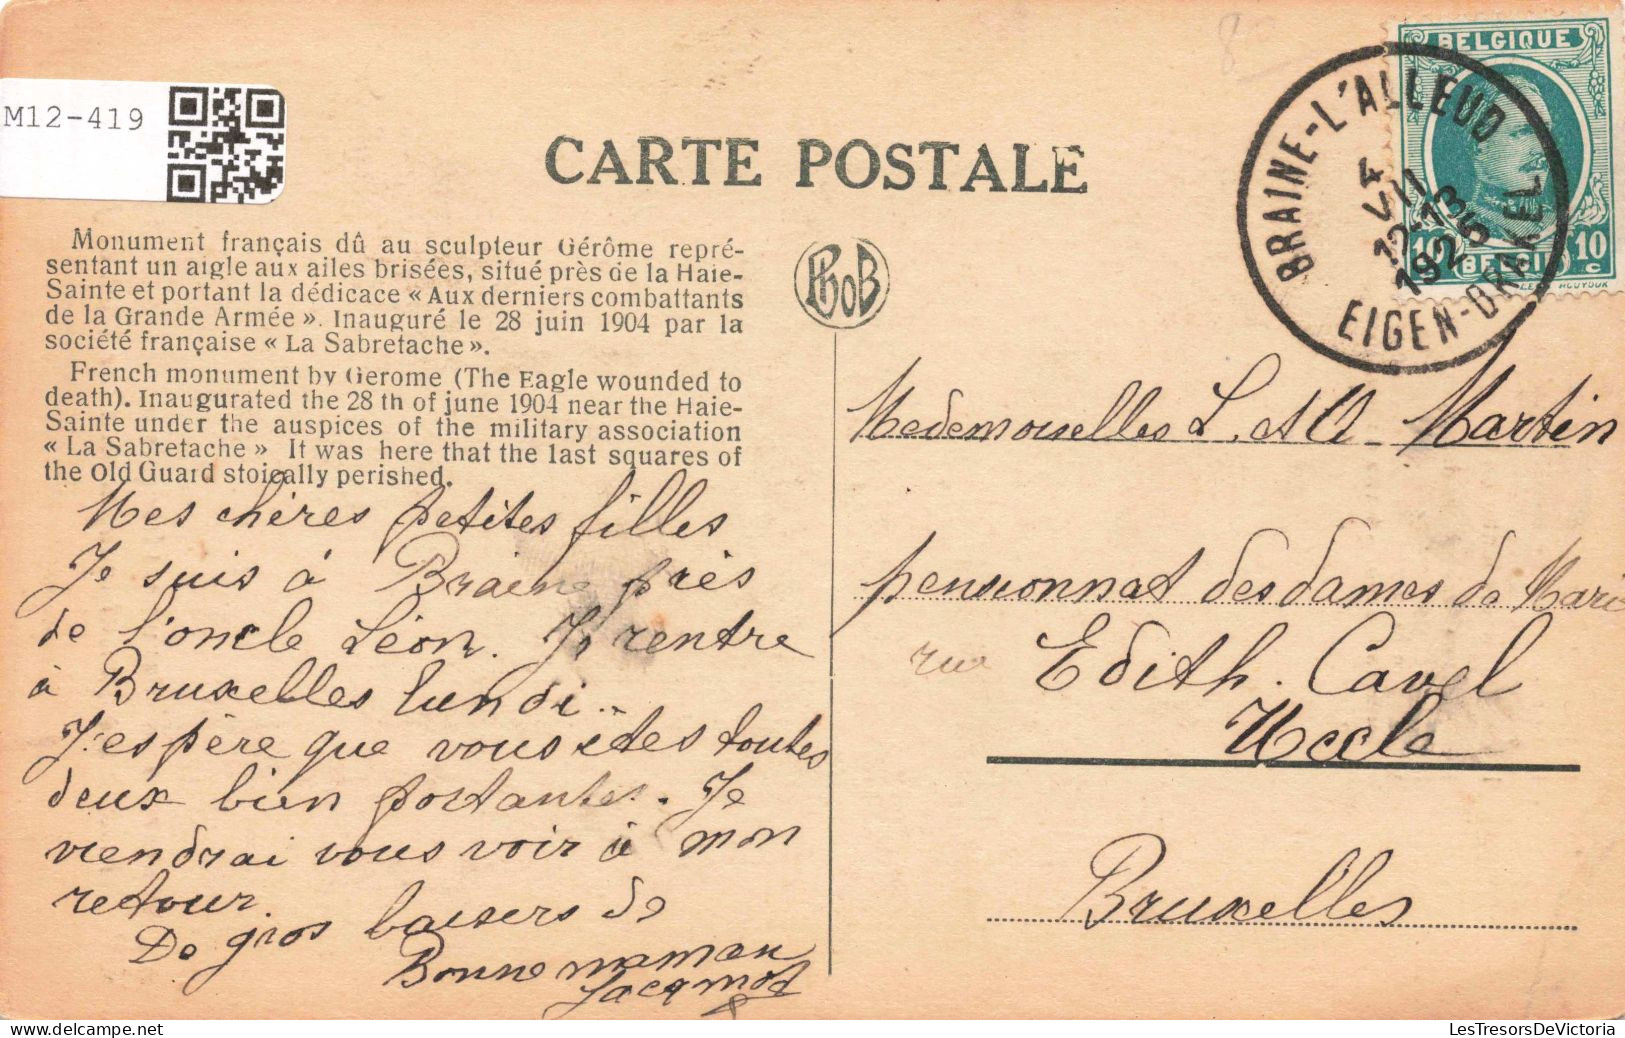 M12-419
CARTE POSTALE
Monument français dû au sculpteur Gérôme repré-
sentant un aigle aux ailes brisées, situé près de la Haie-
Sainte et portant la dédicace « Aux derniers combattants
de la Grande Armée ». Inauguré le 28 juin 1904 par la
société française « La Sabretache ».
French monument by Gerome (The Eagle wounded to
death). Inaugurated the 28 th of june 1904 near the Haie-
Sainte under the auspices of the military association
« La Sabretache » It was here that the last squares of
the Old Guard stoically perished.
Mes chères petites filles
Je suis à Braine près
de l'oncle Léon. Je rentre
à Bruxelles lundi..
J'espère que vous êtes toutes
deux bien portantes. Je
viendrai vous voir à mon
retour.
De gros baisers de
Bonne maman
Jacqmot
PhoB
BELGIQUE
10 c
BELGIË
BRAINE-L'ALLEUD
4 VII
12-13
1925
EIGEN-BRAKEL
Medemoiselles L. et M. Martin
pensionnat des dames de Marie
rue Edith. Cavel
Uccle
Bruxelles
LesTresorsDeVictoria